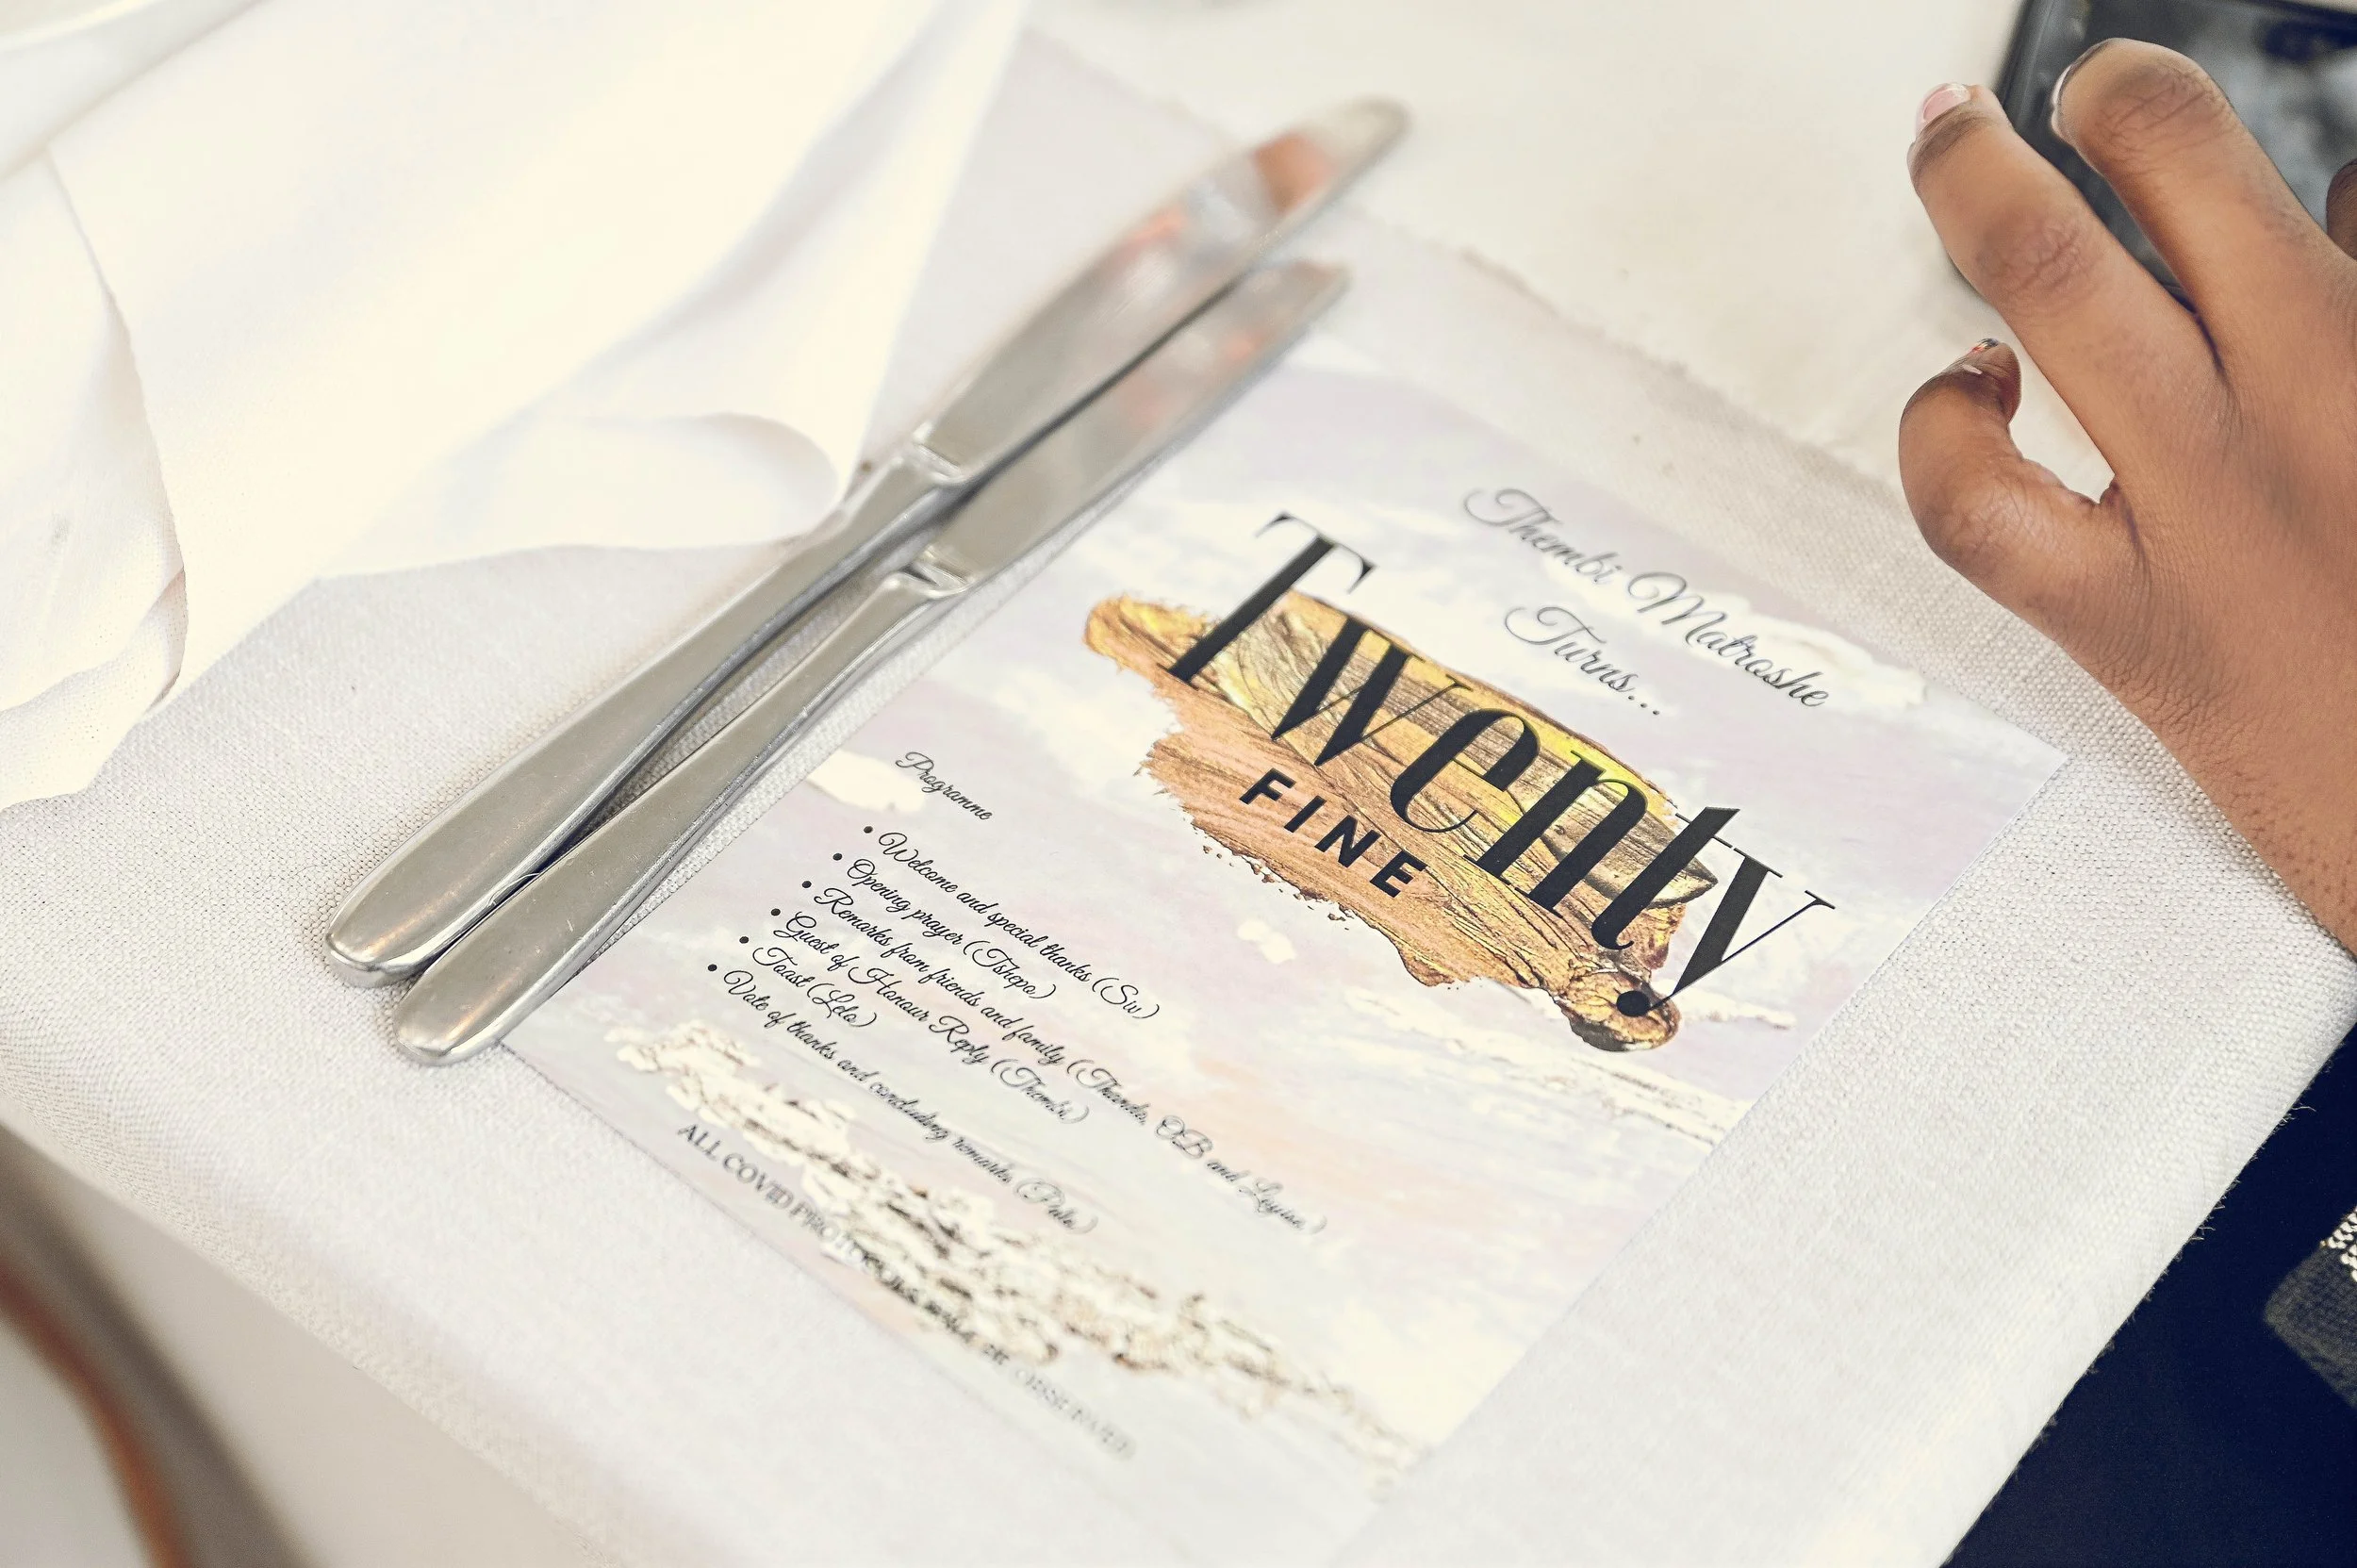 Thembi Matroshe
Turns...
Twenty
FINE
Programme
• Welcome and special thanks (Siv)
• Opening prayer (Tshepo)
• Remarks from friends and family (Thando, OB and Loyiso)
• Guest of Honour Reply (Thembi)
• Toast (Lelo)
• Vote of thanks and concluding remarks
ALL COVID PROTOCOLS WILL BE OBSERVED